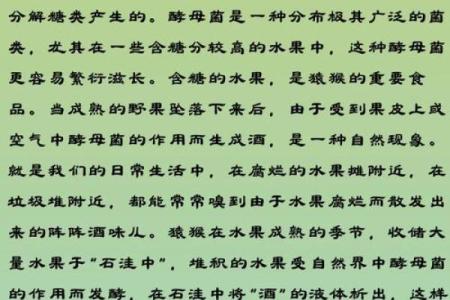 分解糖类产生的。酵母菌是一种分布极其广泛的菌
类，尤其在一些含糖分较高的水果中，这种酵母菌
更容易繁衍滋长。含糖的水果，是猿猴的重要食
品。当成熟的野果坠落下来后，由于受到果皮上或
空气中酵母菌的作用而生成酒，是一种自然现象。
就是我们的日常生活中，在腐烂的水果摊附近，在
垃圾堆附近，都能常常嗅到由于水果腐烂而散发出
来的阵阵酒味儿。猿猴在水果成熟的季节，收储大
量水果于“石洼中”，堆积的水果受自然界中酵母菌
的作用而发酵，在石洼中将“酒”的液体析出，这样